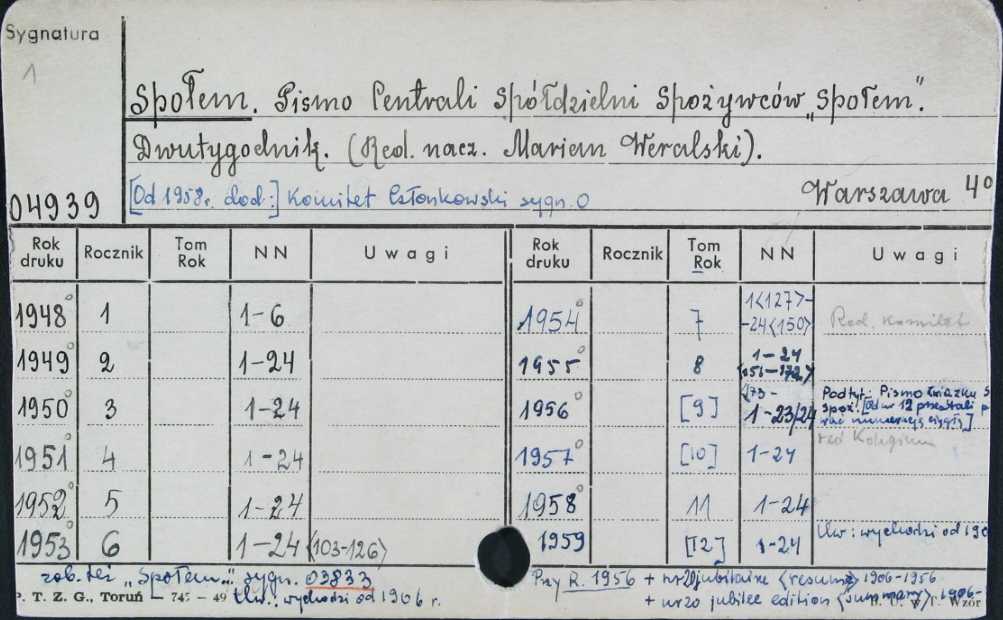 Sygnatura
1
Społem. Pismo Centrali Spółdzielni Spożywców „Społem".
Dwutygodnik. (Red. nacz. Marian Weralski).
04939 [Od 1958r. dod:] Komitet Członkowski sygn. O Warszawa 4o
Rok druku Rocznik Tom Rok NN Uwagi Rok druku Rocznik Tom Rok NN Uwagi
1948° 1 1-6 1954° 7 1<127>--24<150> Red. komitet
1949° 2 1-24 1955° 8 1-24 <151-172>
1950° 3 1-24 1956° [9] <173- 1-23/24 Podtyt: Pismo Związku S
Spoż. [od nr 12 przestali
numerację ciągłą]
1951° 4 1-24 1957° [10] 1-24 red Kolegium
1952° 5 1-24 1958° 11 1-24
1953° 6 1-24 <103-126> 1959 [12] 1-24 Uw: wychodzi od 190
zob. też „Społem..." sygn. 03833 Przy R. 1956 + nr 20 jubitaire <resume> 1906-1956
P. T. Z. G., Toruń - 745 - 49 Uw.: wychodzi od 1906 r. + nr 20 jubilee edition <summary> 1906-
Wzór